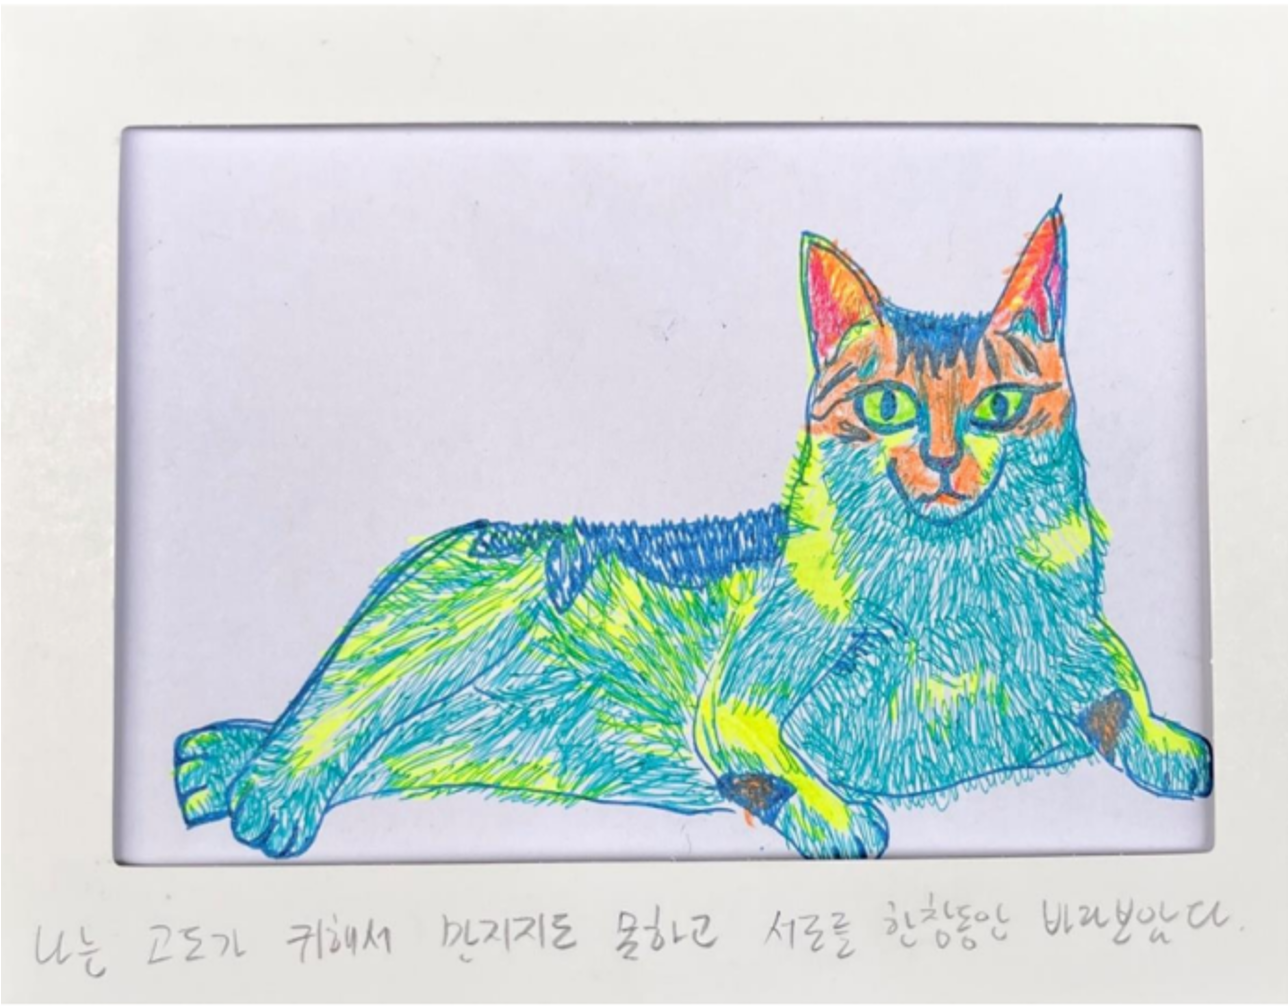 나는 고도가 귀해서 만지지도 못하고 서로를 한창동안 바라보았다.